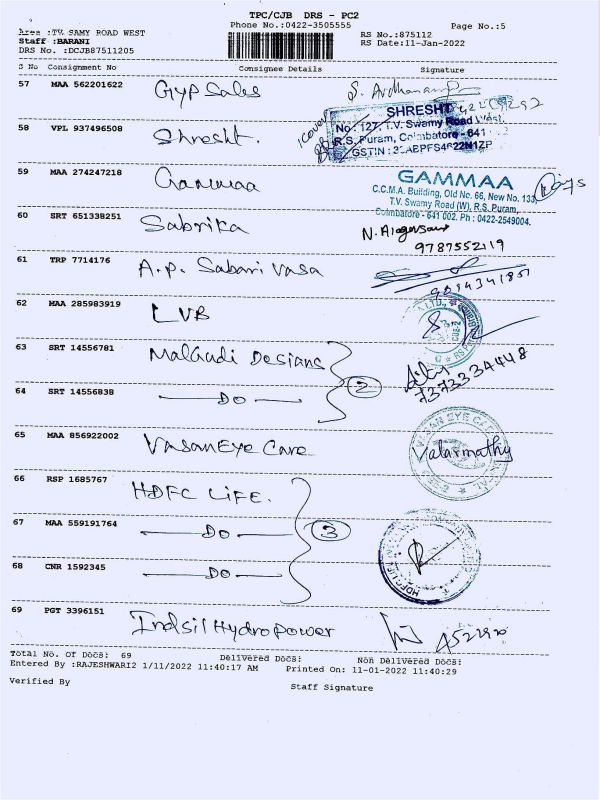 TPC/CJB DRS - PC2
Phone No.:0422-3505555
Page No.:5
Area :TV. SAMY ROAD WEST
Staff :BARANI
DRS No. :DCJB87511205
RS No.:875112
RS Date:11-Jan-2022
S No Consignment No Consignee Details Signature
57 MAA 562201622 Gyp Sales
58 VPL 937496508 Shresht.
SHRESHT
No : 127, T.V. Swamy Road West,
R.S. Puram, Coimbatore - 641
GSTIN : 33ABPFS4622N1ZP
59 MAA 274247218 Gammaa
GAMMAA
C.C.M.A. Building, Old No. 66, New No. 133,
T.V. Swamy Road (W), R.S. Puram,
Coimbatore - 641 002. Ph : 0422-2549004.
60 SRT 651338251 Sabrika
9787552119
61 TRP 7714176 A.P. Sabari Vasa
62 MAA 285983919 LVB
63 SRT 14556781 Malgudi Designs
2
7373334448
64 SRT 14556838 DO
65 MAA 856922002 Vasan Eye Care
Valarmathy
66 RSP 1685767 HDFC LIFE.
67 MAA 559191764 DO
3
68 CNR 1592345 DO
69 PGT 3396151 Indsil Hydro Power
Total No. Of Docs: 69 Delivered Docs: Non Delivered Docs:
Entered By :RAJESHWARI2 1/11/2022 11:40:17 AM Printed On: 11-01-2022 11:40:29
Verified By
Staff Signature